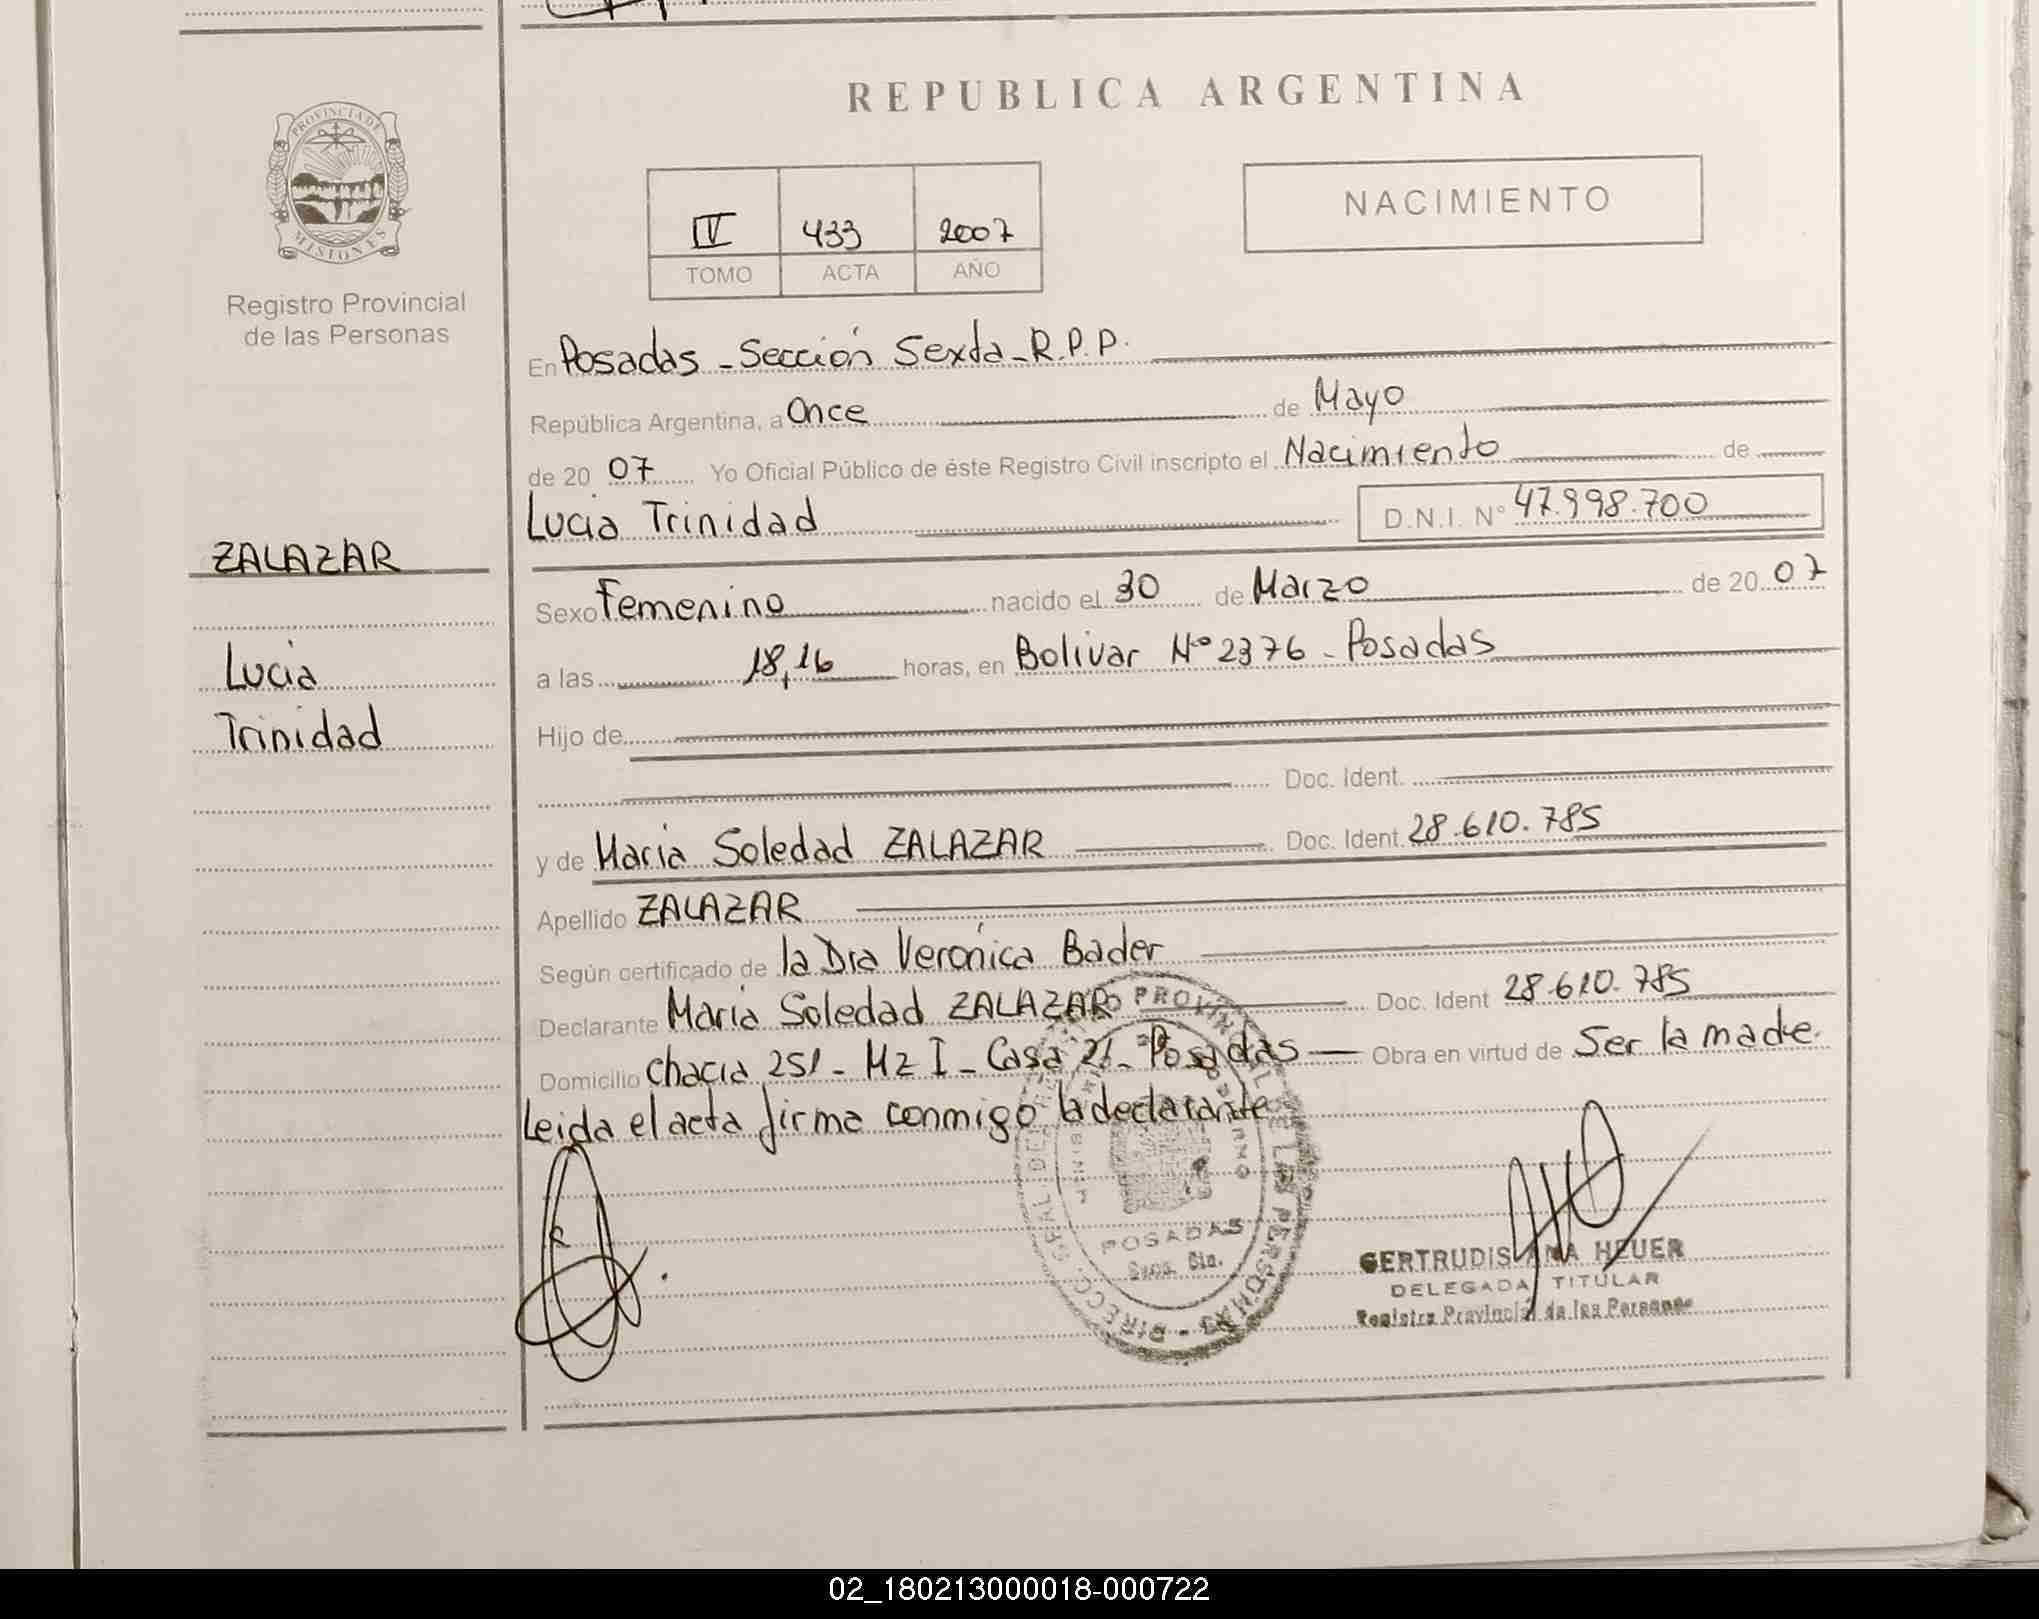 REPUBLICA ARGENTINA
PROVINCIA DE
MISIONES
Registro Provincial
de las Personas
NACIMIENTO
IV 433 2007
TOMO ACTA AÑO
En Posadas - Sección Sexta - R.P.P.
República Argentina, a Once de Mayo
de 20 07 Yo Oficial Público de éste Registro Civil inscripto el Nacimiento de
Lucia Trinidad D.N.I. Nº 47.998.700
ZALAZAR
Lucia
Trinidad
Sexo Femenino nacido el 30 de Marzo de 20 07
a las 18,16 horas, en Bolivar Nº 2376 - Posadas
Hijo de
Doc. Ident.
y de Maria Soledad ZALAZAR Doc. Ident. 28.610.785
Apellido ZALAZAR
Según certificado de la Dra Verónica Bader
Declarante Maria Soledad ZALAZAR Doc. Ident 28.610.785
Domicilio Chacra 251 - Mz I - Casa 21 - Posadas Obra en virtud de Ser la madre.
Leida el acta firma conmigo la declarante
POSADAS
GERTRUDIS ANA HEUER
DELEGADA TITULAR
Registro Provincial de las Personas
02_180213000018-000722